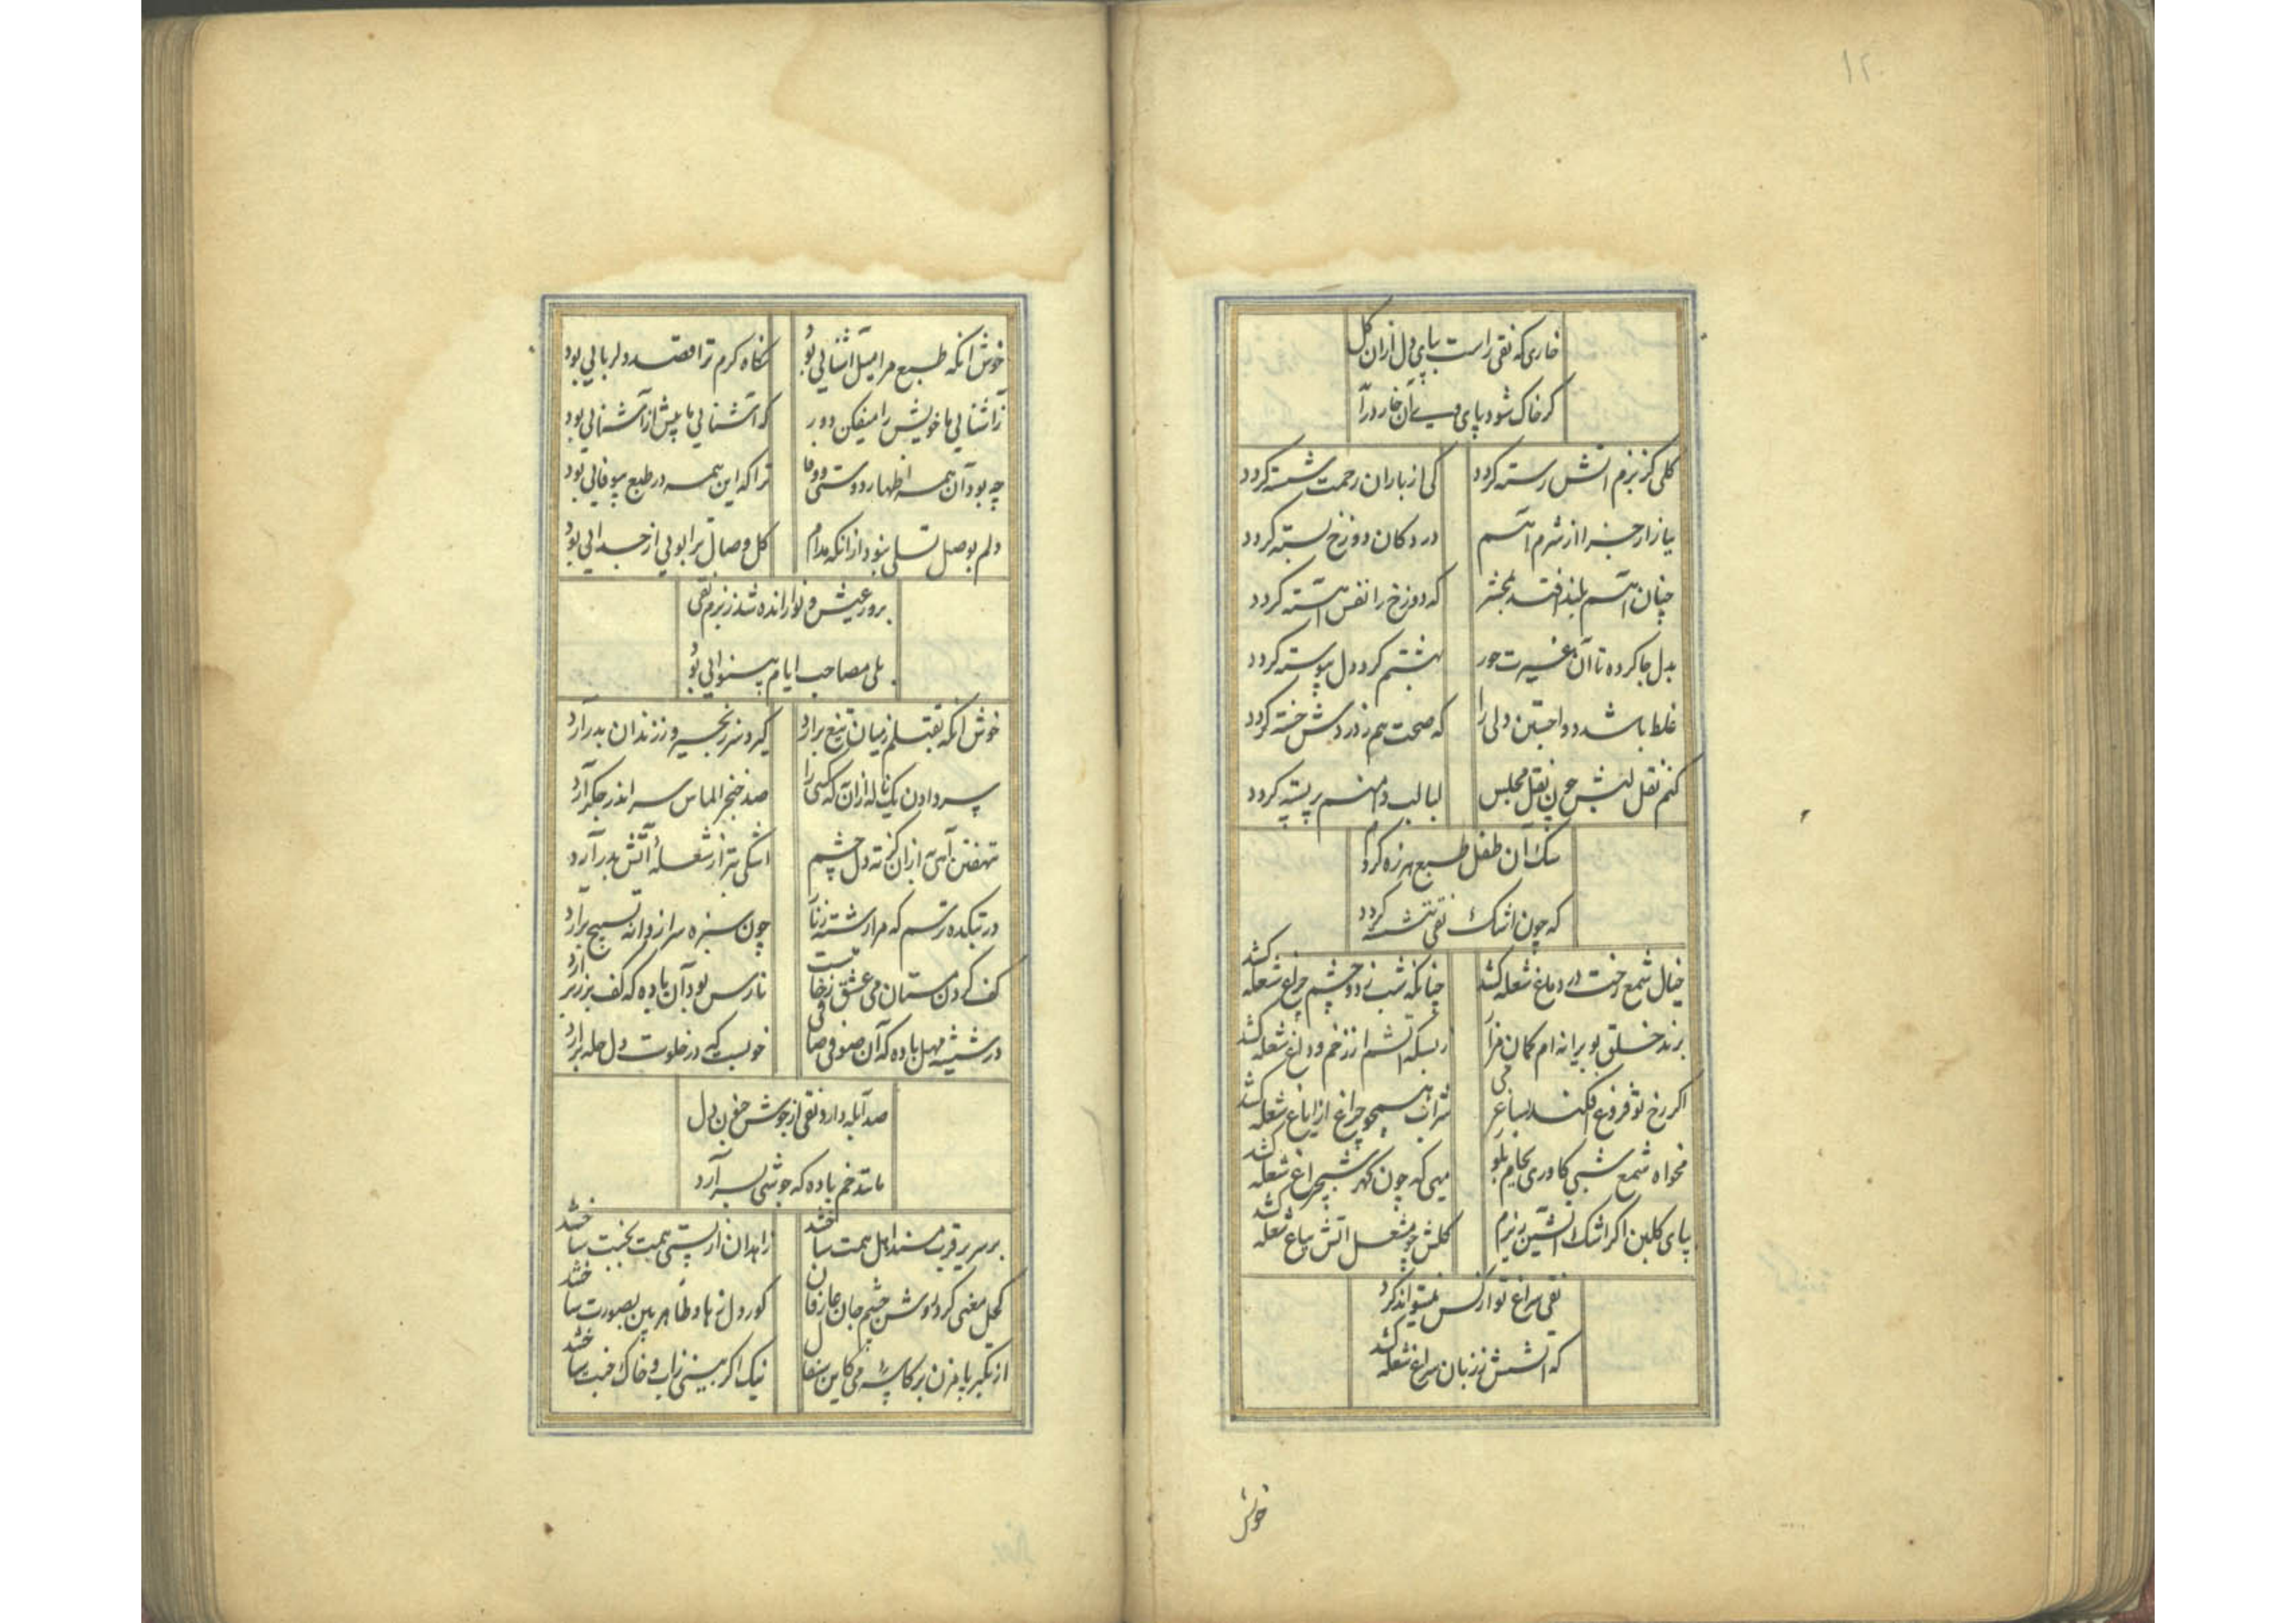 ۱۲
خاری که نقی راست بپای دل ازان گل
کر خاک شود پای وی آن خار درآرد
کلی کز بزم اتش رسته کردد
کی از باران رحمت شسته کردد
در دکان دوزخ بسته کردد
چنان اهم بلند افتد بمحشر
که دوزخ را نفس اهسته کردد
بدل جا کرده تا آن غیرت حور
بهشتم کرد دل پیوسته کردد
غلط باشد دوا جستن دلی را
که صحت هم ز دردش خسته کردد
کنم نقل لبش چون نقل مجلس
لبالب دامنم پر پسته کردد
سک آن طفل طبع هرزه کردم
که چون اشک نقی ننشسته کردد
خیال شمع رخت در دماغ شعله کشد
چنانکه شب ز دو چشمم چراغ شعله کشد
برند خلق بویرانه ام کمان مزار
ز بسکه اتشم از زخم و داغ شعله کشد
اکر رخ تو فروغ افکند بساغر می
شراب همچو چراغ از ایاغ شعله کشد
مخواه شمع شبی کاوری بجام بلور
میی که چون کهر شبچراغ شعله کشد
بپای کلبن اکر اشک اتشین ریزم
کلش چو مشعل اتش بباغ شعله کشد
نقی سراغ تو از کس نمیتواند کرد
که اتشش ز زبان سراغ شعله کشد
خوش
خوش انکه طبع مرا میل اشنایی بود
نکاه کرم ترا قصد دلربایی بود
ز آشنایی ما خویش را میفکن دور
که آشنایی ما پیش از آشنایی بود
چه بود آن همه اظهار دوستی و وفا
ترا که این همه در طبع بیوفایی بود
دلم بوصل تسلی نبود ازانکه مدام
کل وصال ترا بویی از جدایی بود
بروز عیش و نوا رانده شد ز بزم نقی
بلی مصاحب ایام بینوایی بود
خوش انکه بقتلم ز میان تیغ برآرد
کیرد سر زنجیر و ز زندان بدر آرد
سر دادن یک ناله ازان به که کسی را
صد خنجر الماس سر اندر جکر آرد
نهفتن آهی به ازان کز ته دل چشم
اشکی بتر از شعلهٔ آتش بدر آرد
در بتکده ترسم که مرا رشته زنار
چون سبزه سر از دانه تسبیح برآرد
کف کردن مستان می عشق ز خامیست
نارس بود آن باده که کف بر زبر آرد
در شیشه مهل باده که آن صوفی صافی
خوبست که در خلوت دل چله برآرد
صد آبله دارد نقی از جوش خون دل
مانند خم باده که جوشی بسر آرد
بر سریر قرب مسند اهل همت ساختند
زاهدان از پستی همت بجنت ساختند
کحل معنی کرد روشن چشم جان عارفان
کور دل زهاد ظاهر بین بصورت ساختند
از تکبر پا مزن بر کاسهٔ می کاین سفال
نیک اکر بینی ز اب و خاک جنت ساختند